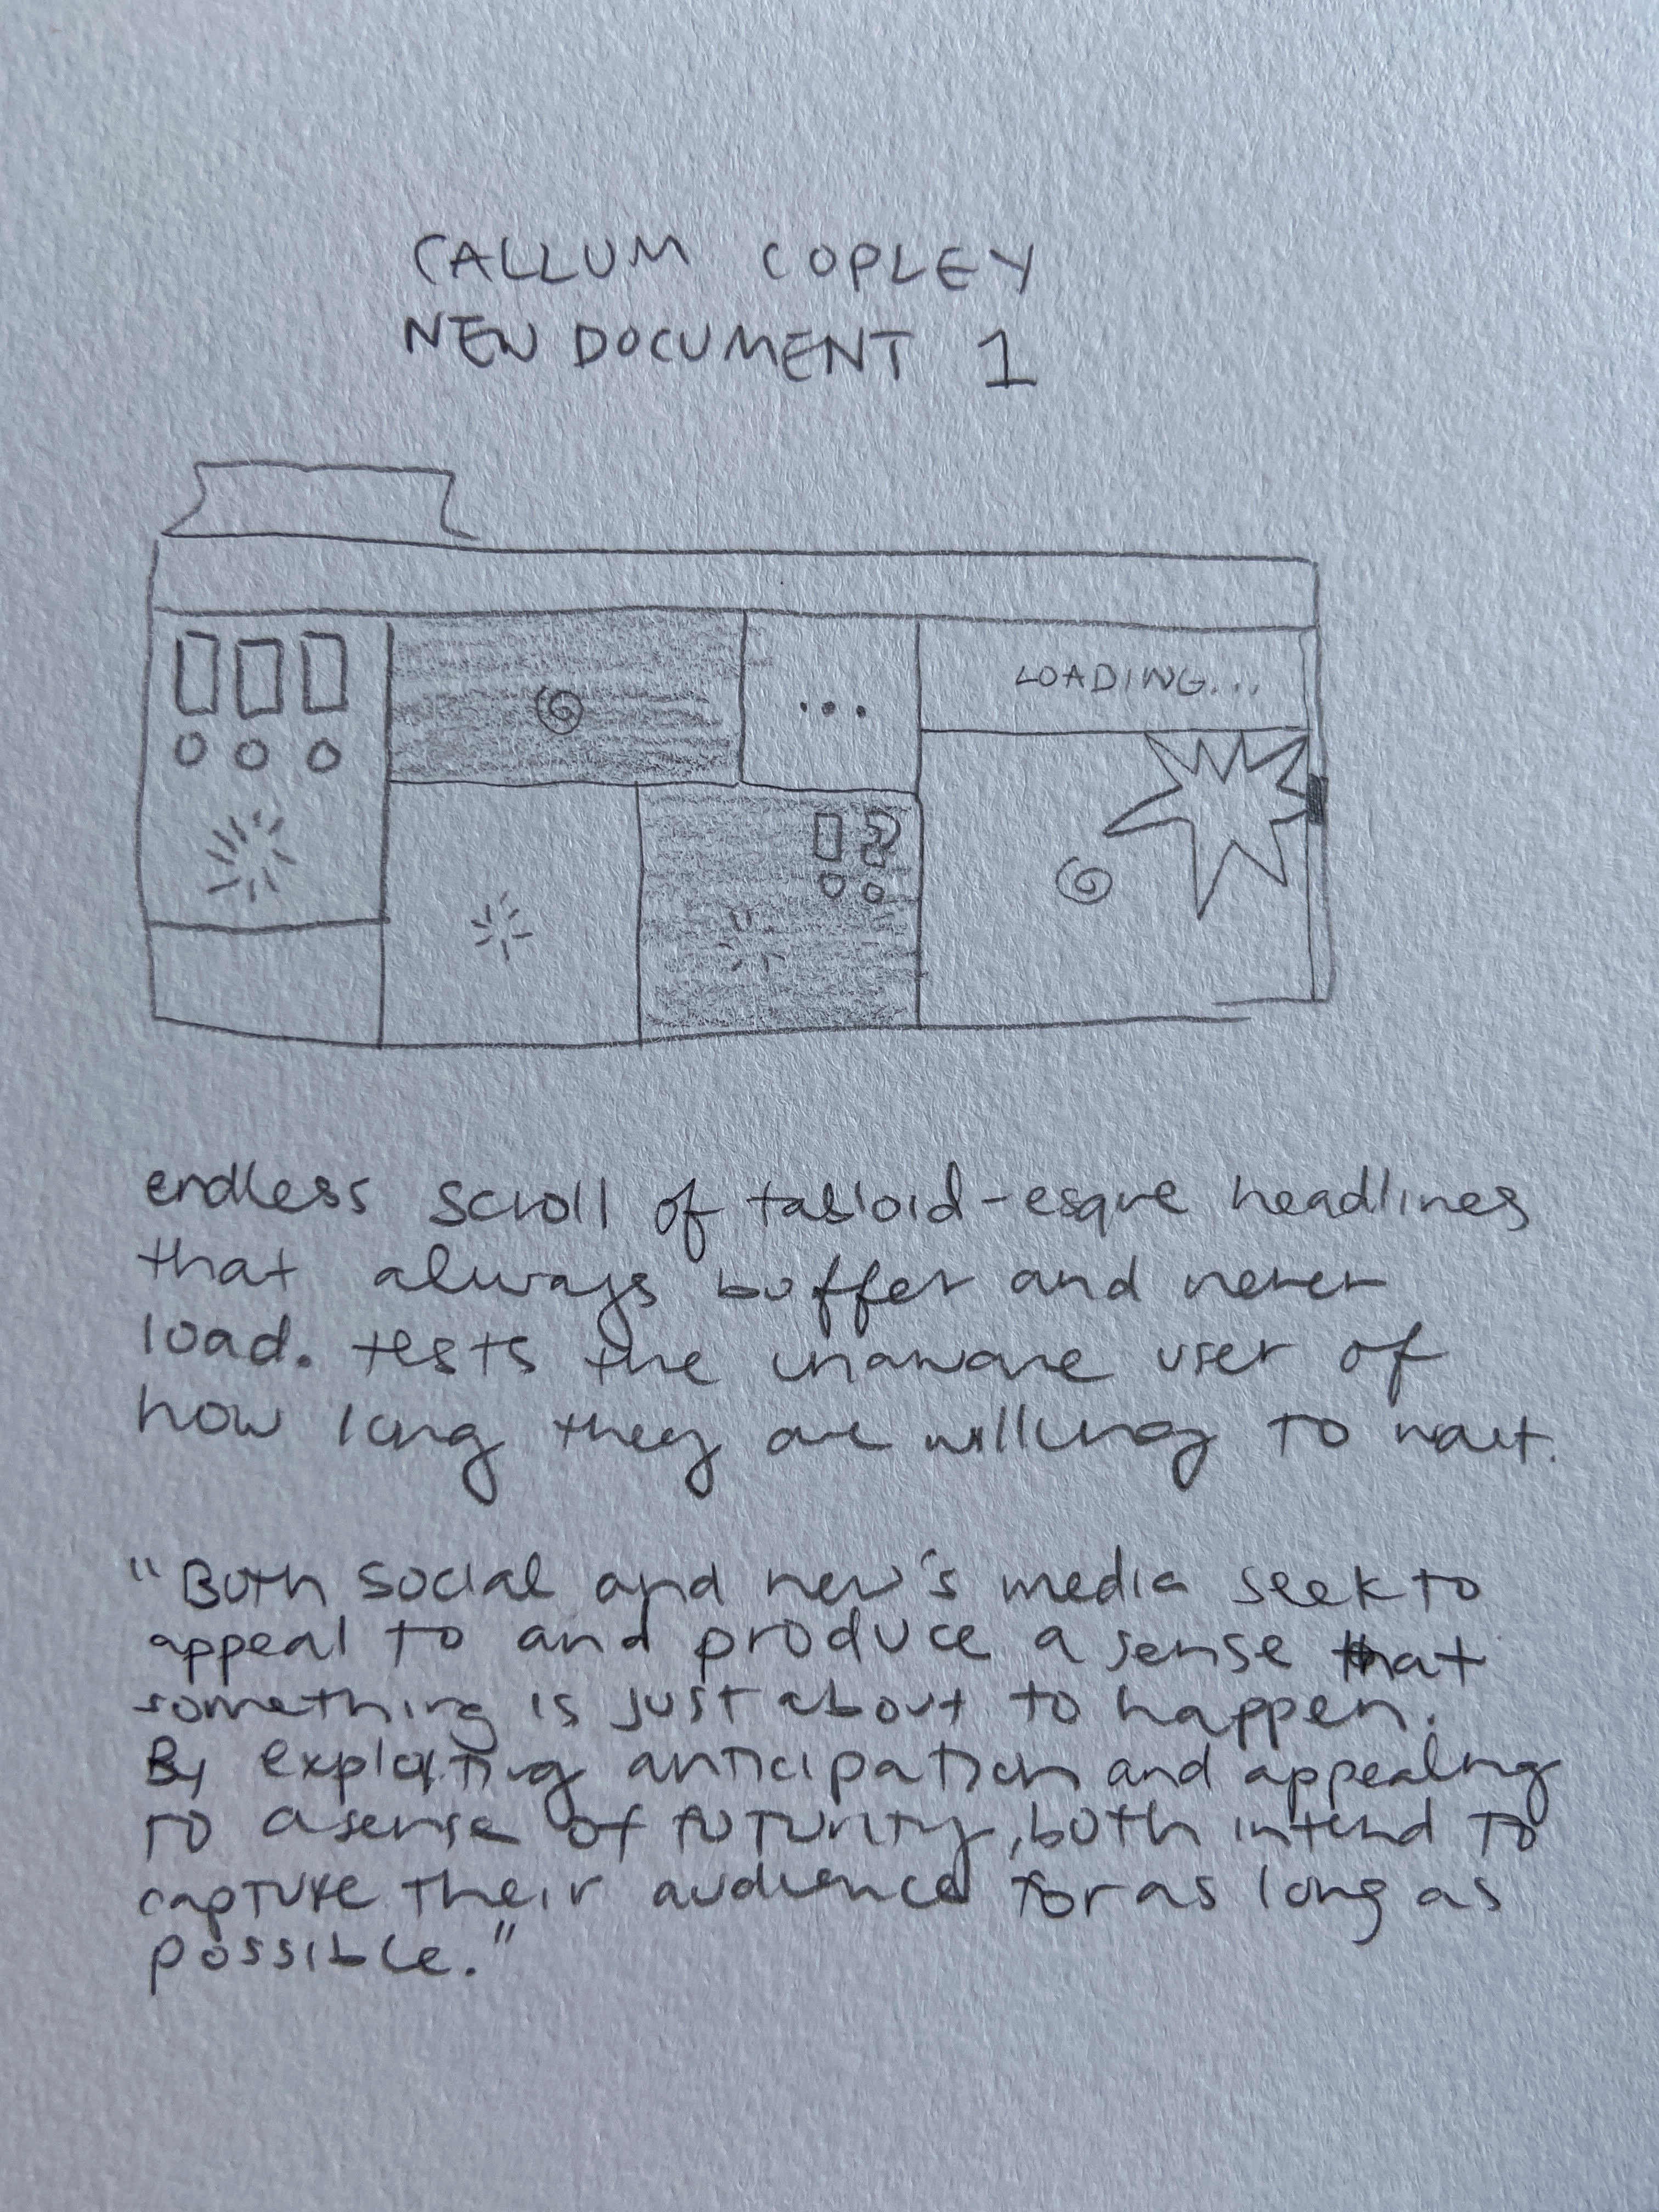 CALLUM COPLEY
NEW DOCUMENT 1
...
LOADING...
endless scroll of tabloid-esque headlines
that always buffer and never
load. tests the unaware user of
how long they are willing to wait.
"Both social and new's media seek to
appeal to and produce a sense that
something is just about to happen.
By exploiting anticipation and appealing
to a sense of futurity, both intend to
capture their audience for as long as
possible."